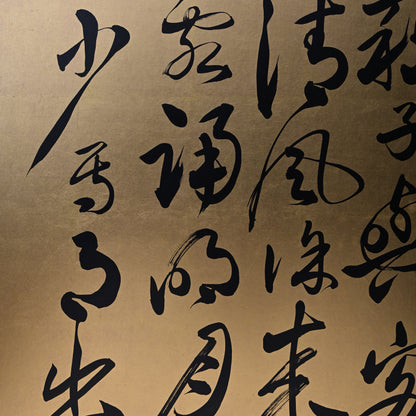 蘇子與客
清風徐來
客誦明月
少焉月出